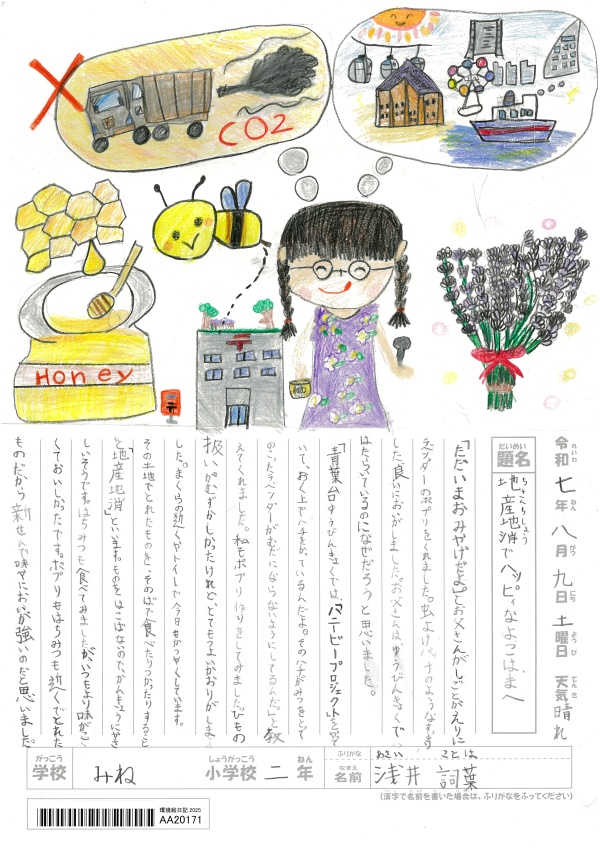 CO2
Honey
令和七年八月九日土曜日 天気晴れ
れいわ ねん がつ にち ようび てんき
だいめい
題名
ちさんちしょう
地産地消でハッピィなよこはまへ
「ただいまおみやげだよ。」とお父さんがしごとがえりに
ラベンダーのポプリをくれました。虫よけパッチのようなすっきり
した良いにおいがしました。お父さんはゆうびんきょくで
はたらいているのになぜだろうと思いました。
「青葉台ゆうびんきょくでは、ハニービープロジェクトをやって
いて、おく上でハチをかっているんだよ。そのハチがみつをとって
のこったラベンダーがむだにならないようにしてるんだ」と教
えてくれました。私もポプリ作りをしてみました。ひもの
扱いがむずかしかったけれど、とてもつよいかおりがしま
した。まくらの近くやトイレで今日もかつやくしています。
その土地でとれたものを、そのばで食べたりつかったりすること
を「地産地消」といいます。ものをはこばないので、かんきょうにやさ
しいそうです。はちみつも食べてみましたが、いつもより味がこ
くておいしかったです。ポプリもはちみつも近くでとれた
ものだから新せんで味やにおいが強いのだと思いました。
がっこう
学校
みね
しょうがっこう ねん
小学校 二年
ふりがな あさい ことは
なまえ
名前 浅井 詞葉
(漢字で名前を書いた場合は、ふりがなをふってください)
環境絵日記 2025
AA20171